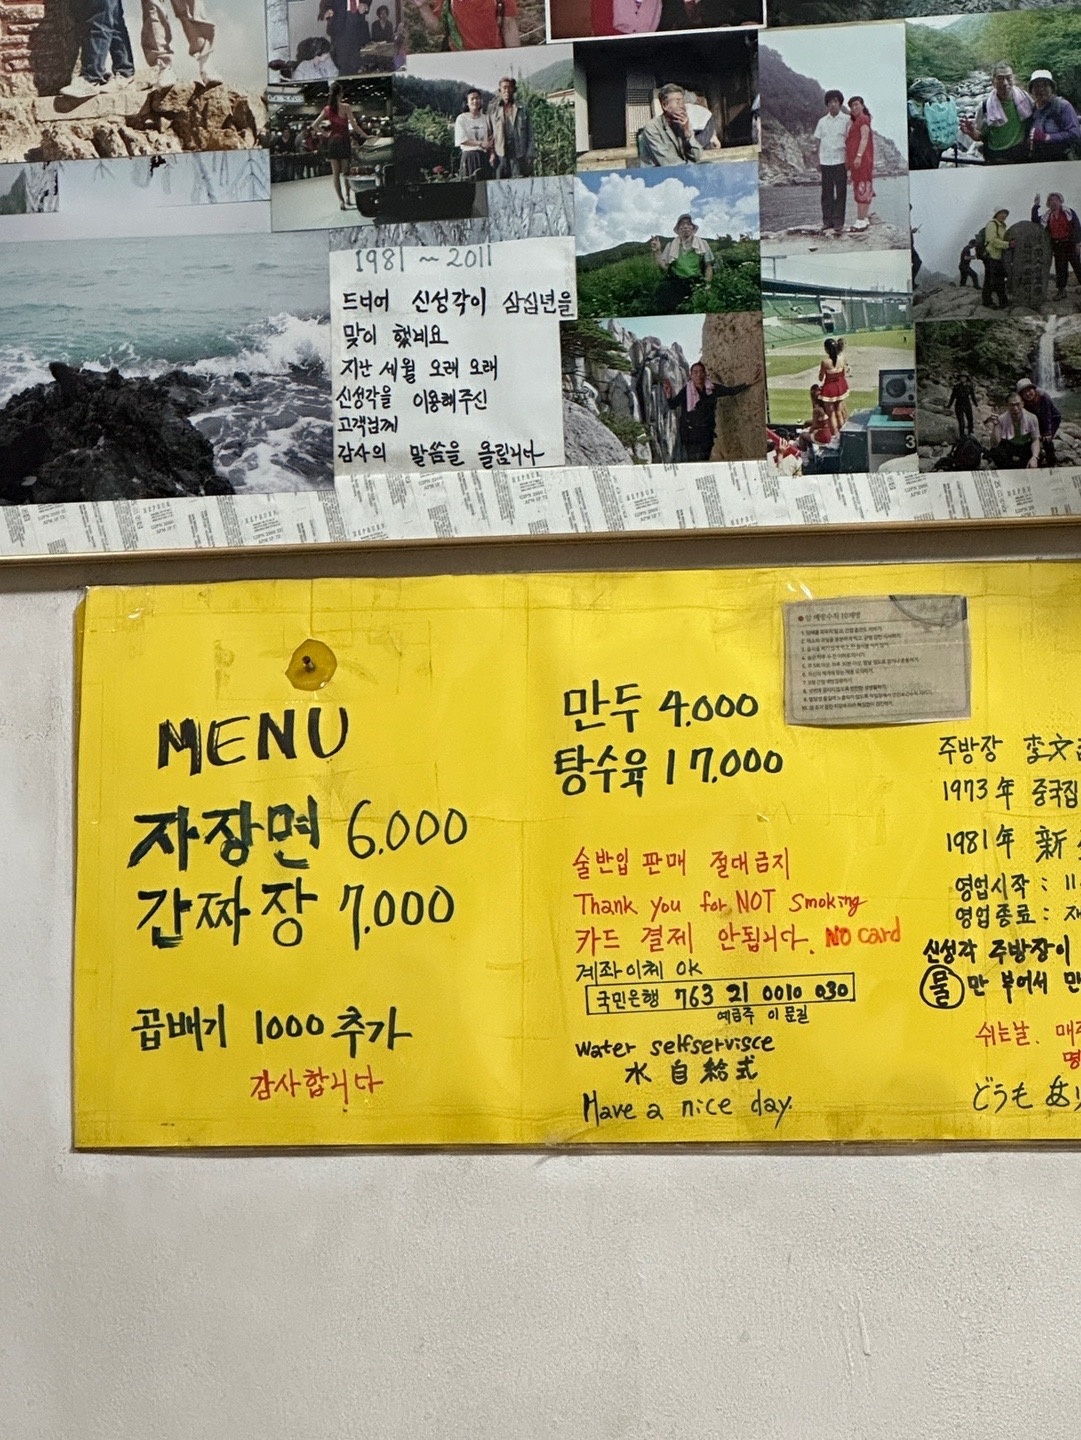 1981 ~ 2011
드디어 신성각이 삼십년을
맞이 했네요
지난 세월 오래 오래
신성각을 이용해주신
고객님께
감사의 말씀을 올립니다
MENU
자장면 6,000
간짜장 7,000
곱배기 1000 추가
감사합니다
만두 4,000
탕수육 17,000
술반입 판매 절대금지
Thank you for NOT smoking
카드 결제 안됩니다. NO card
계좌이체 OK
국민은행 763 21 0010 030
예금주 이문길
Water selfservisce
水 自給式
Have a nice day.
암 예방수칙 10계명
주방장 李文
1973年 중국집
1981年 新
영업시작 : 11
영업종료 :
신성각 주방장이
물만 부어서
쉬는날. 매주
どうも あり